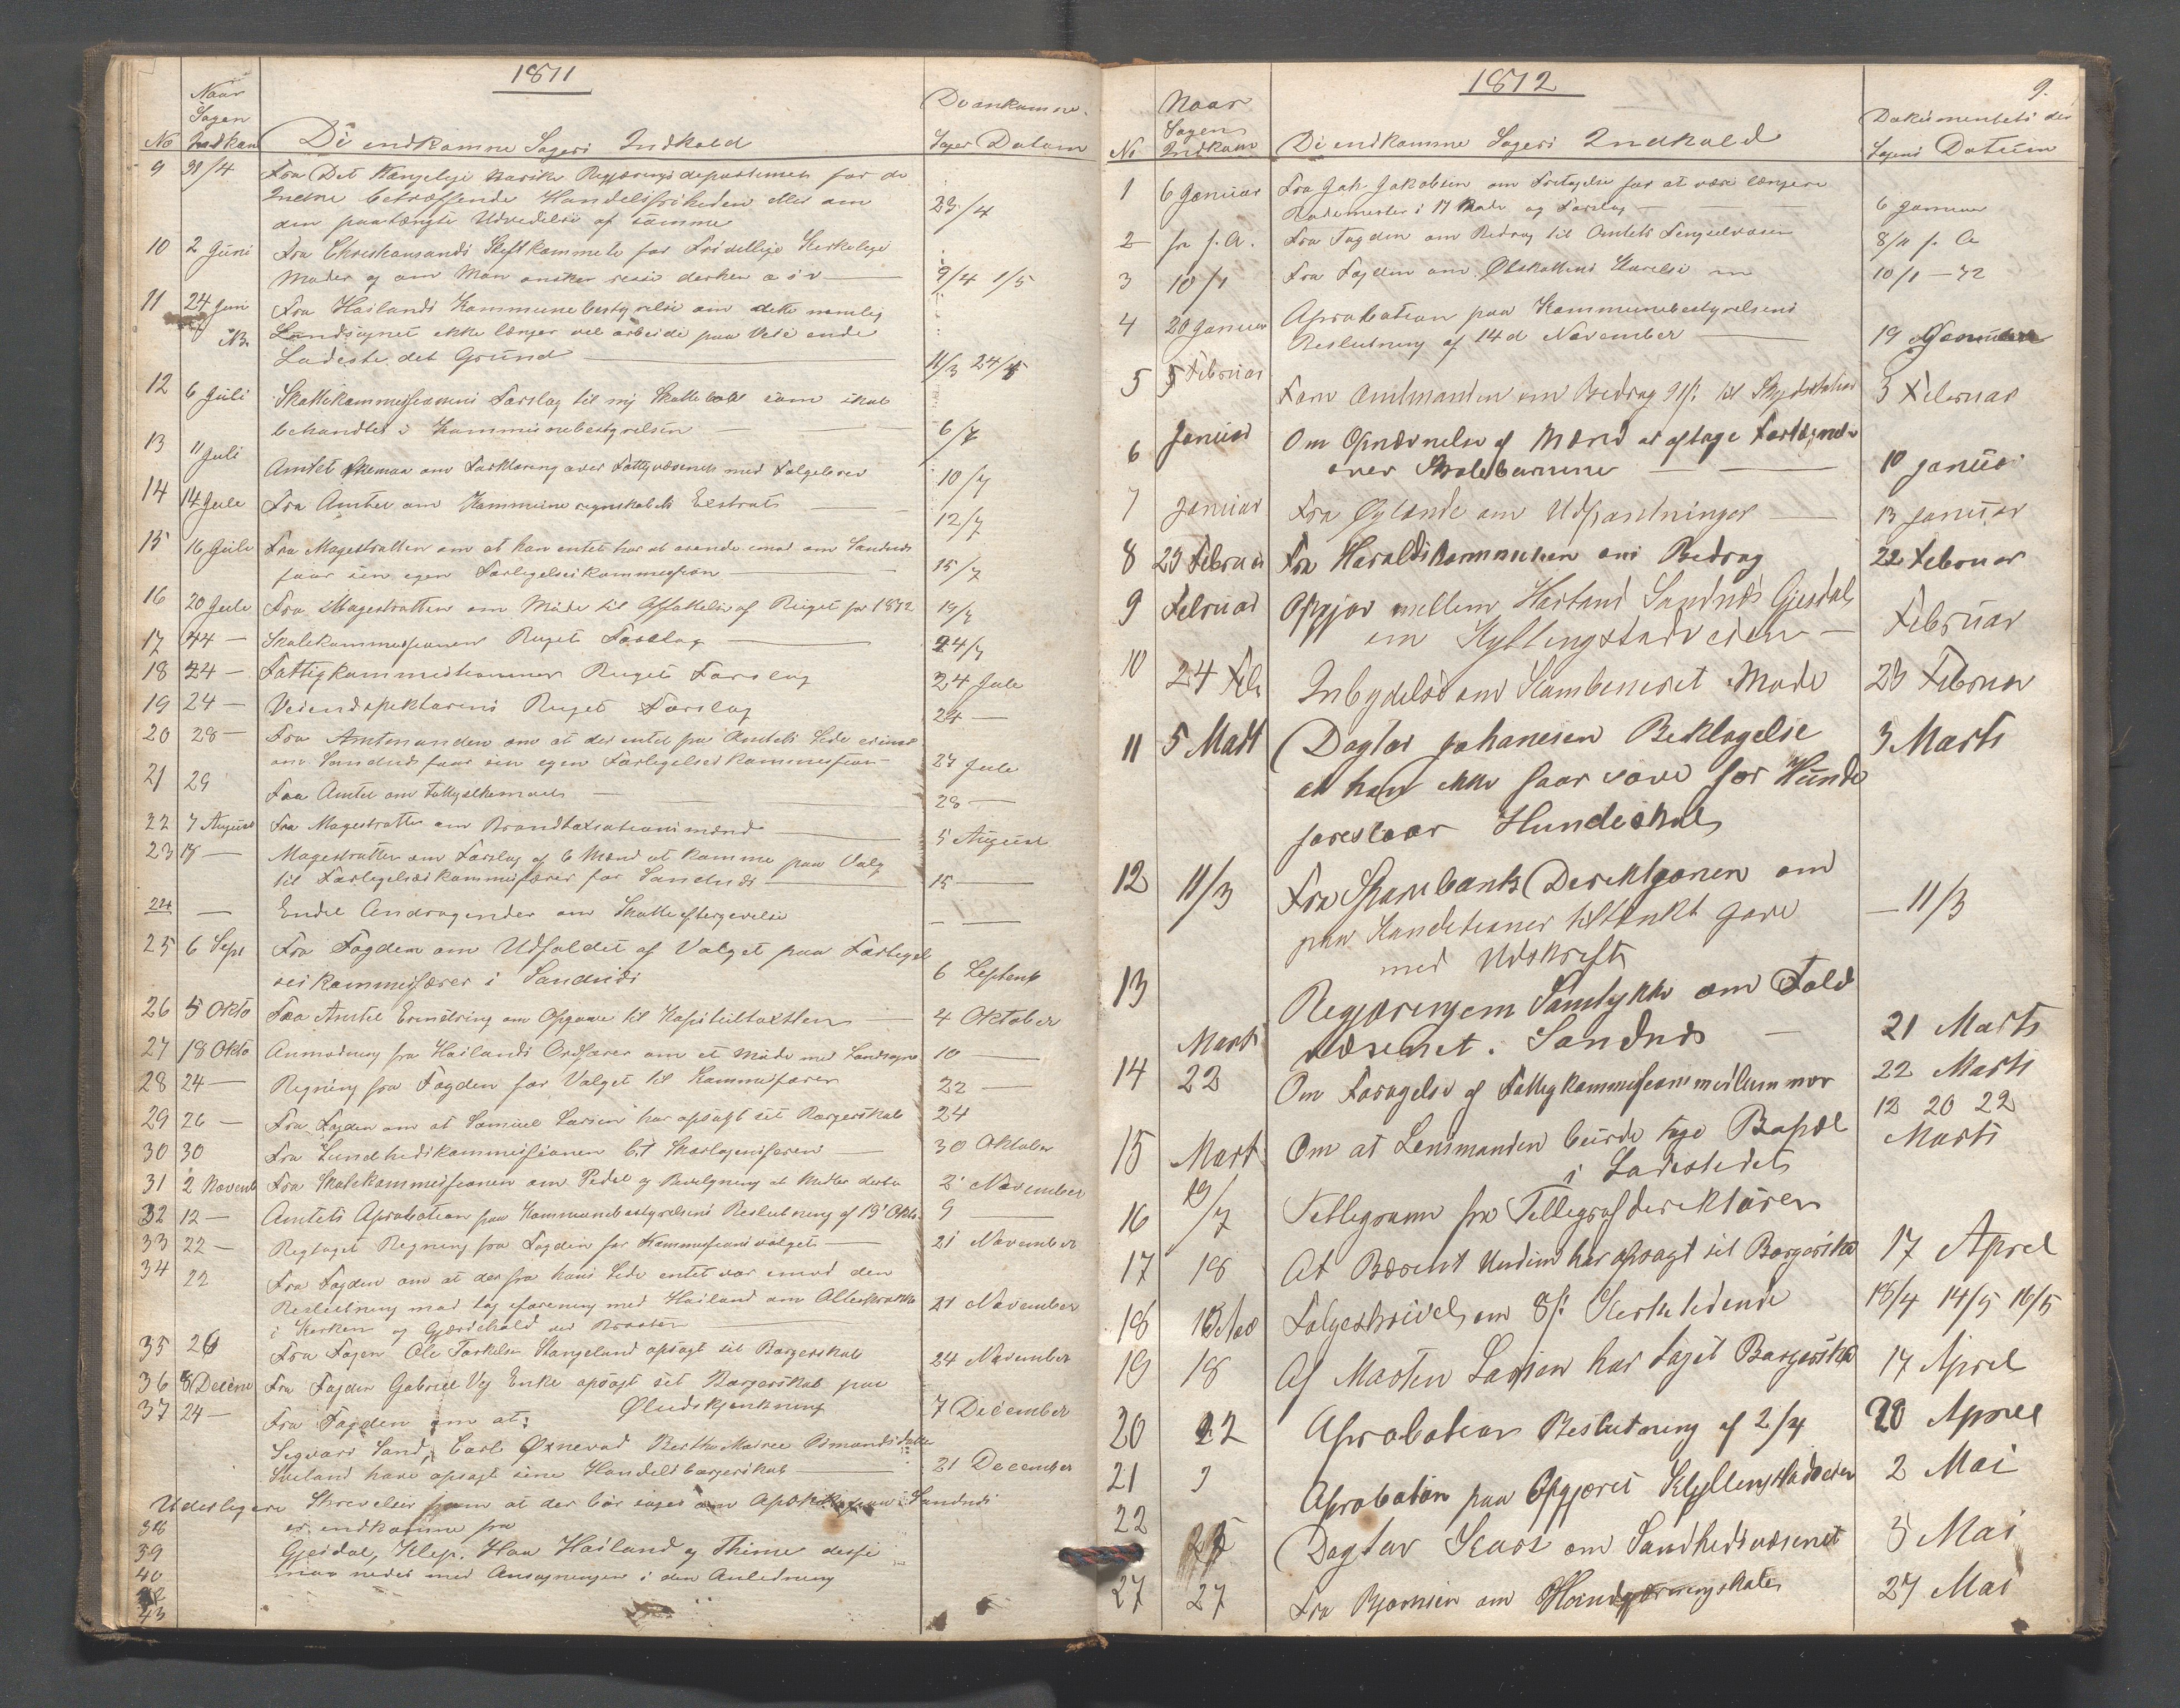 1871
Naar
Sagen
No Indkom De indkomne Sagers Indhold De ankomne Sager Datum
9 31/4 Fra Det Kongelige Norske Regjerings departement for de
Indre beträffende Handelsfriheden eller om
den paatængte Udvidelse af samme 23/4
10 2 Juni Fra Christiansands Stift for Frivillige Kirkelige
Møder og om Man ønsker 9/4 1/5
11 24 Juni Fra Høilands Kommunebestyrelse om dette nemlig
NB. Landsognet ikke længer vil arbeide paa Veie
Ladestedet Grund 11/3 24/5
12 6 Juli Skattekommissionens Forslag til ny Skattebok som skal
behandles i Kommunebestyrelsen 6/7
13 11 Juli Amtet Skemaa om Forklaring over Fattigvæsenet med Følgebrev 10/7
14 14 Jule Fra Amtet om Kommune regnskabets Ekstrat 12/7
15 16 Jule Fra Magestratten om at han entet har at imod om Sandnes
faar sin egen Forligelseskommission 15/7
16 20 Jule Fra Magestratten om Møde til af Ruget for 1872 19/7
17 24 — Skolekommissionen Ruget Forslag 24/7
18 24 — Fattigkommissionens Ruget Forslag 24 Jule
19 24 — Veiendspektørens Ruget Forslag 24 —
20 28 — Fra Amtmanden om at der entet paa Amtets Side er imod
om Sandnes faar sin egen Forligelseskommission 27 Jule
21 29 Fra Amtet om 28 —
22 7 August Fra Magestratten om Brandtaxationsmænd 5 August
23 18 — Magestratten om Forslag af 6 Mænd at komme paa Valg
til Forligelseskommisærer for Sandnes 15 —
24 — Endel Andragender om Skatteeftergivelse —
25 6 Sept Fra Fogden om Udfaldet af Valget paa Forligel
seskommisærer i Sandnes 6 Septemb
26 5 Okto Fra Amtet Erindring om Opgave til Kapitultaxtten 4 Oktober
27 18 Okto Anmodning fra Høilands Ordfører om et Møde med Landsogne 10 —
28 24 — Regning fra Fogden for Valget til Kommisærer 22 —
29 26 — Fra Fogden om at Samuel Larsen har opsagt sit Borgerskab 24
30 30 Fra Sundhedskommissionen bt Skarlagensfeber 30 Oktober
31 2 Novemb Fra Skolekommissionen om Pedel og Bevilgning at Midler dertil 2 November
32 12 — Amtets Aprobation paa Kommunebestyrelsens Beslutning af 13 Okto. 9 —
33 22 — Regtaget Regning fra Fogden for Kommisions valget 21 November
34 22 Fra Fogden om at der fra hans Side entet var imod den
Beslutning mod i forening med Høiland om
i Kirken og Gjærdehold ved 21 November
35 26 Fra Fogen Ole Torkelsen Stangeland opsagt sit Borgerskab 24 November
36 8 Decem Fra Fogden Gabriel Vg Enke opsagt sit Borgerskab paa
Øludskjenkning 7 December
37 24 — Fra Fogden om at:
Segvard Sand, Carl Øxnevad Bertha Marree Osmundsdatter
have opsagt sine Handelsborgerskab 21 December
Uderligere Skrevelser om at der bør søges om Apothek i Sandnes
38 er endkomne fra
39 Gjesdal, Klep, Haa Høiland og Thime desse
40 maa nedes med Ansøgningen i den Anledning
42
43
1872
9.
Naar
Sagens
No Indkom De indkomne Sagers Indhold Dokumentets des Sagens Datum
1 6 Januar Fra Jah Jakobsen om Fretagelse for at være længere
Rodemester i 17 Rode og Forslag 6 Januar
2 fra f. A. Fra Fogden om Bedrag til Amtets Fengselvæsen 8/11 f. A
3 10/1 Fra Fogden om Ølskattens Størelse 10/1 – 72
4 20 Januar Aprobation paa Kommunebestyrelsens
Beslutning af 14d November 19 Januar
5 5 Februar Fom Amtmanden om Bedrag til Skydsstation 3 Februar
6 Januar Om Opnævnelse af Mænd at optage Fortegnelse
over Skolebørnene 10 Januar
7 Januar Fra Øglænde om Udpantninger 13 Januar
8 23 Februar Fra Haralds kommunen om Bedrag 22 Februar
9 Februar Opgjør mellem Høiland Sandnes Gjesdal
om Kyllingstadveien Februar
10 24 Feb Inbydelse om Kombeneret Møde 23 Februar
11 5 Mart Dogtor Johanesen Beklagelse 3 Marts
at han ikke faar vove for Hunde
foreslaar Hundeskat
12 11/3 Fra Sparebanks Direktionen om
paa Konditioner tiltænkt gave — 11/3
med Udskrift
13 Regjeringem Samtykke om Told
Marts væsenet i Sandnes 21 Marts
14 22 Om Forøgelse af Fattigkommissionsmedlemmer 22 Marts
15 Mart Om at Lensmanden burde tage Bopæl 12 20 22
i Ladestedet Marts
16 19/7 Tellegram fra Tellegrafdirektøren
17 18 At Bærent har opsagt sit Borgerska 17 Aprel
18 Følgeskrivelse om Kirketidende 18/4 14/5 16/5
19 18 Af Morten Larsen har taget Borgerska 17 Aprel
20 22 Aprobation Beslutning af 2/4 20 Aprel
21 3 Aprobation paa Opgjøret Kyllingstadveien 2 Mai
22 25 Dogtor om Sundhedsvæsenet 5 Mai
27 27 Fra Bjørnsen om 27 Mai